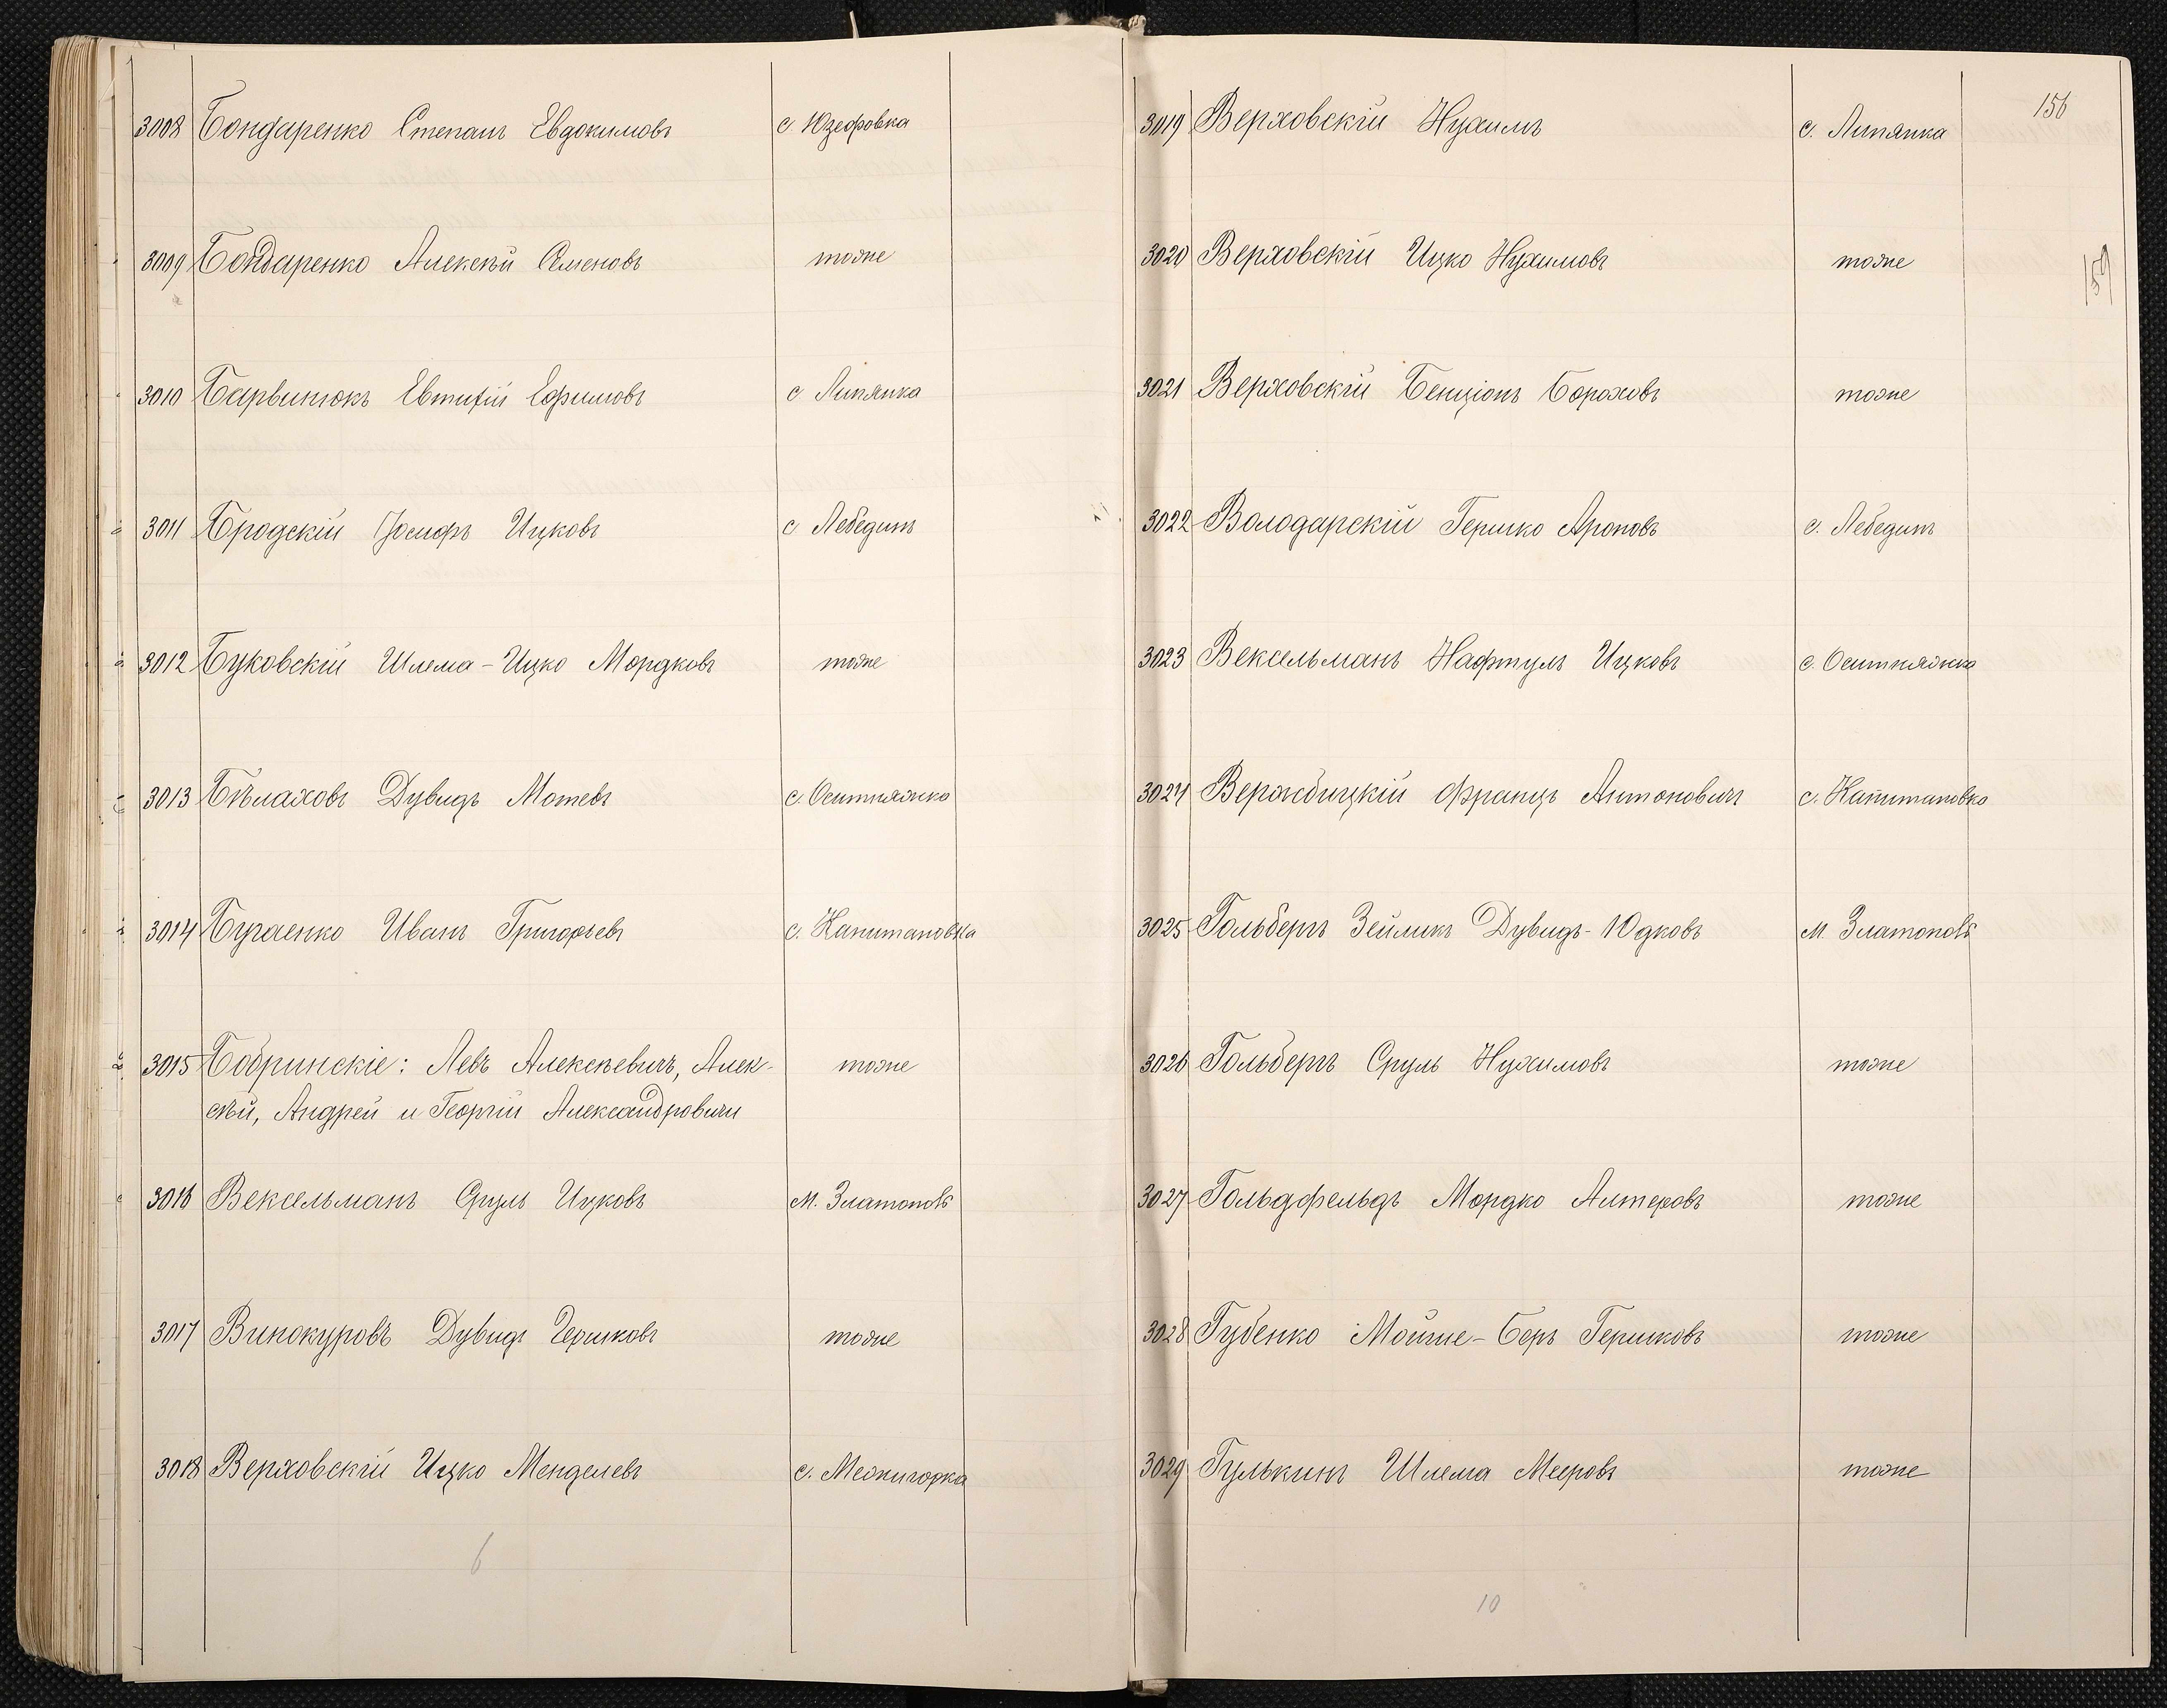 3008 Бондаренко Степанъ Евдокимовъ с Юзефовка
3009 Бондаренко Алексѣй Семеновъ тоже
3010 Барвинюкъ Евтихій Ефимовъ с Липянка
3011 Бродскій Іосифъ Ицковъ с Лебединъ
3012 Буковскій Шлема-Ицко Мордковъ тоже
3013 Бѣлаховъ Дувидъ Мотевъ с. Оситняжка
3014 Бугаенко Иванъ Григорьевъ с. Капитановка
3015 Бобринскіе: Левъ Алексѣевичъ, Алек- тоже
сѣй, Андрей и Георгій Александровичи
3016 Вексельманъ Сруль Ицковъ м. Златополь
3017 Винокуровъ Дувидъ Гершковъ тоже
3018 Верховскій Ицко Менделевъ с. Межигорка
6
156
3019 Верховскій Нухимъ с. Липянка
3020 Верховскій Ицко Нухимовъ тоже
159
3021 Верховскій Бенціонъ Бороховъ тоже
3022 Володарскій Гершко Ароновъ с. Лебединъ
3023 Вексельманъ Нафтулъ Ицковъ с. Оситняжка
3024 Вержбицкій Францъ Антоновичъ с. Капитановка
3025 Гольбергъ Зейликъ Дувидъ-Юдковъ м. Златополь
3026 Гольбергъ Сруль Нухимовъ тоже
3027 Гольдфельдъ Мордко Алтеровъ тоже
3028 Губенко Мойше-Беръ Гершковъ тоже
3029 Гулькинъ Шлема Мееровъ тоже
10